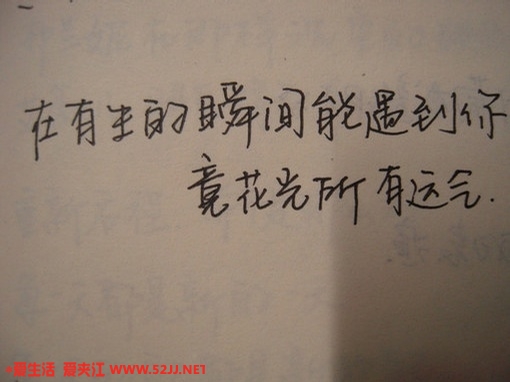 在有生的瞬间能遇到你
竟花光所有运气.
爱生活 爱夹江 WWW.52JJ.NET